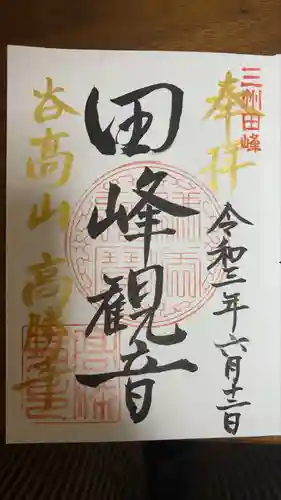 三州田峰
奉拝
令和三年六月十二日
田峰観音
谷高山高勝寺